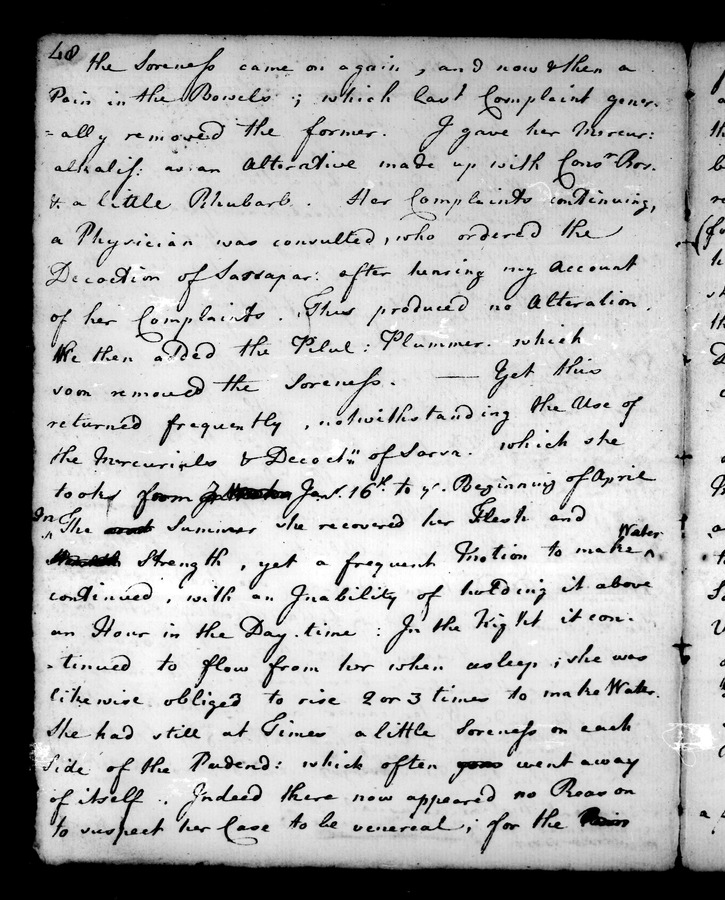 48
the Soreness came on again, and now & then a
Pain in the Bowels; which last Complaint gener-
=ally removed the former. I gave her Mercur:
alkalis: as an Alterative made up with Cons.r Ror.
& a little Rhubarb. Her Complaints continuing,
a Physician was consulted, who ordered the
Decoction of Sassapar: after hearing my Account
of her Complaints. This produced no Alteration.
We then added the Pilul: Plummer. which
soon removed the Soreness. — Yet this
returned frequently, notwithstanding the Use of
the Mercurials & Decoct.n of Sarsa. which she
took from Jan.y 16.th to y.e Beginning of April
In
The Summer she recovered her Flesh and
Water
Strength, yet a frequent Motion to make ^
continued, with an Inability of holding it above
an Hour in the Day-time: In the Night it con-
-tinued to flow from her when asleep; she was
likewise obliged to rise 2 or 3 times to make Water.
She had still at Times a little Soreness on each
Side of the Pudend: which often went away
of itself. Indeed there now appeared no Reason
to suspect her Case to be venereal; for the